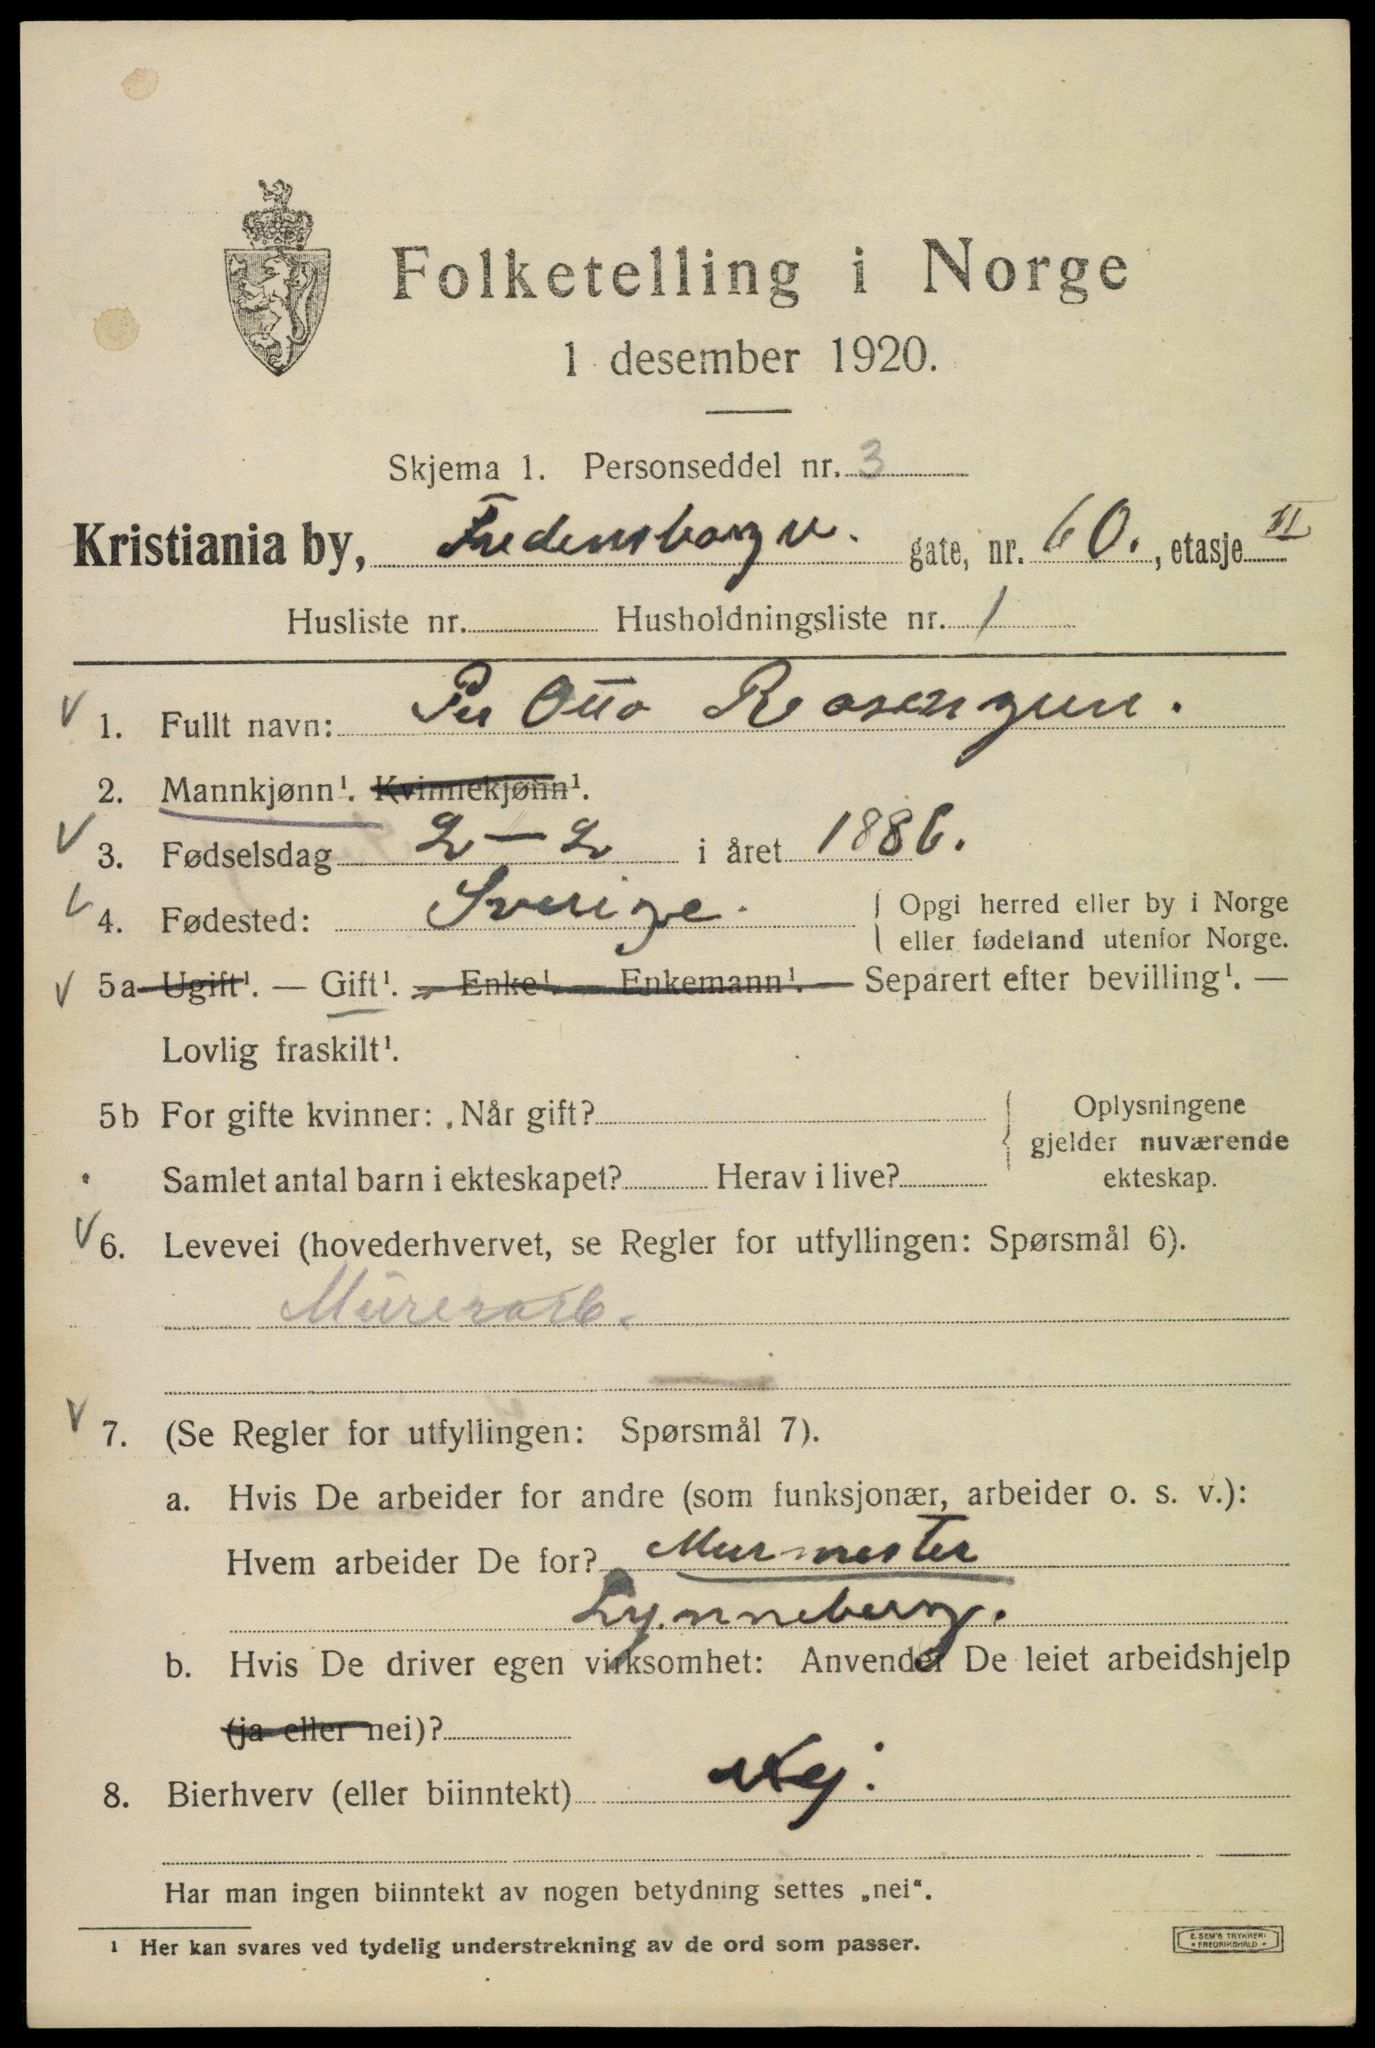 Folketelling i Norge
1 desember 1920.
Skjema 1. Personseddel nr. 3
Kristiania by, Fredensborgv. gate, nr. 60., etasje II
Husliste nr. Husholdningsliste nr. 1
1. Fullt navn: Per Otto Rosengren.
2. Mannkjønn¹. Kvinnekjønn¹.
3. Fødselsdag 2 - 2 i året 1886.
4. Fødested: Sverige. Opgi herred eller by i Norge
eller fødeland utenfor Norge.
5a Ugift¹. — Gift¹. — Enke¹. — Enkemann¹. — Separert efter bevilling¹. —
Lovlig fraskilt¹.
5b For gifte kvinner: Når gift?
Samlet antal barn i ekteskapet? Herav i live?
Oplysningene
gjelder nuværende
ekteskap.
6. Levevei (hovederhvervet, se Regler for utfyllingen: Spørsmål 6).
Murerarb.
7. (Se Regler for utfyllingen: Spørsmål 7).
a. Hvis De arbeider for andre (som funksjonær, arbeider o. s. v.):
Hvem arbeider De for? Murmester
Lynneberg.
b. Hvis De driver egen virksomhet: Anvender De leiet arbeidshjelp
(ja eller nei)?
8. Bierhverv (eller biinntekt) Nej.
Har man ingen biinntekt av nogen betydning settes „nei“.
¹ Her kan svares ved tydelig understrekning av de ord som passer.
E. SEM'S TRYKKERI
• FREDRIKSHALD •